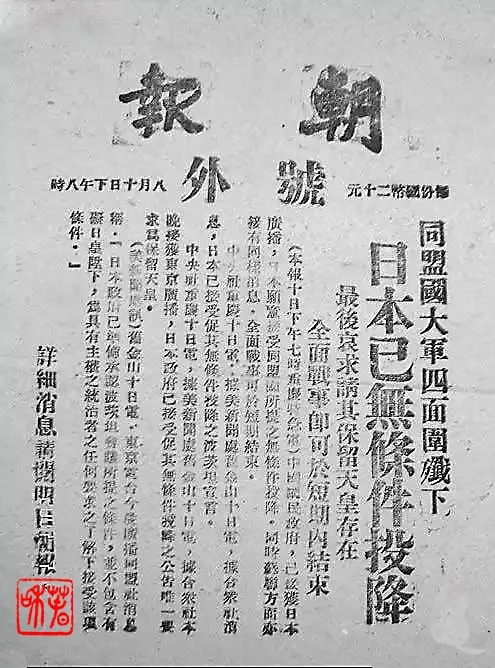 朝報
號外
每份國幣二十元
八月十日下午八時
同盟國大軍四面圍殲下
日本已無條件投降
最後哀求請其保留天皇存在
全面戰事即可於短期內結束
(本報十日下午七時重慶特急電)中國國民政府,已接獲日本
廣播,日本願意接受同盟國所提之無條件投降。同時蘇聯方面亦
接有同樣消息。全面戰事可於短期結束。
中央社重慶十日電:據美新聞處舊金山十日電,據合衆社消
息,日本已接受促其無條件投降之波茨坦宣言。
中央社重慶十日電,據美新聞處舊金山十日電,據合衆社本
晚接獲東京廣播,日本政府已接受促其無條件投降之公告唯一要
求爲保留天皇。
(美新聞處訊)舊金山十日電,東京電台今晨廣播同盟社消息
稱:「日本政府已準備承認波茨坦會議所提之條件,並不包含有
礙日皇陛下,爲具有主權之統治者之任何要求之了解下接受該項
條件。」
詳細消息請閱明日朝報